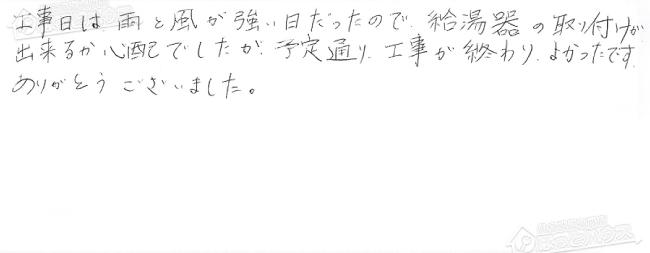 工事日は雨と風が強い日だったので、給湯器の取り付けが
出来るか心配でしたが、予定通り、工事が終わり、よかったです。
ありがとうございました。